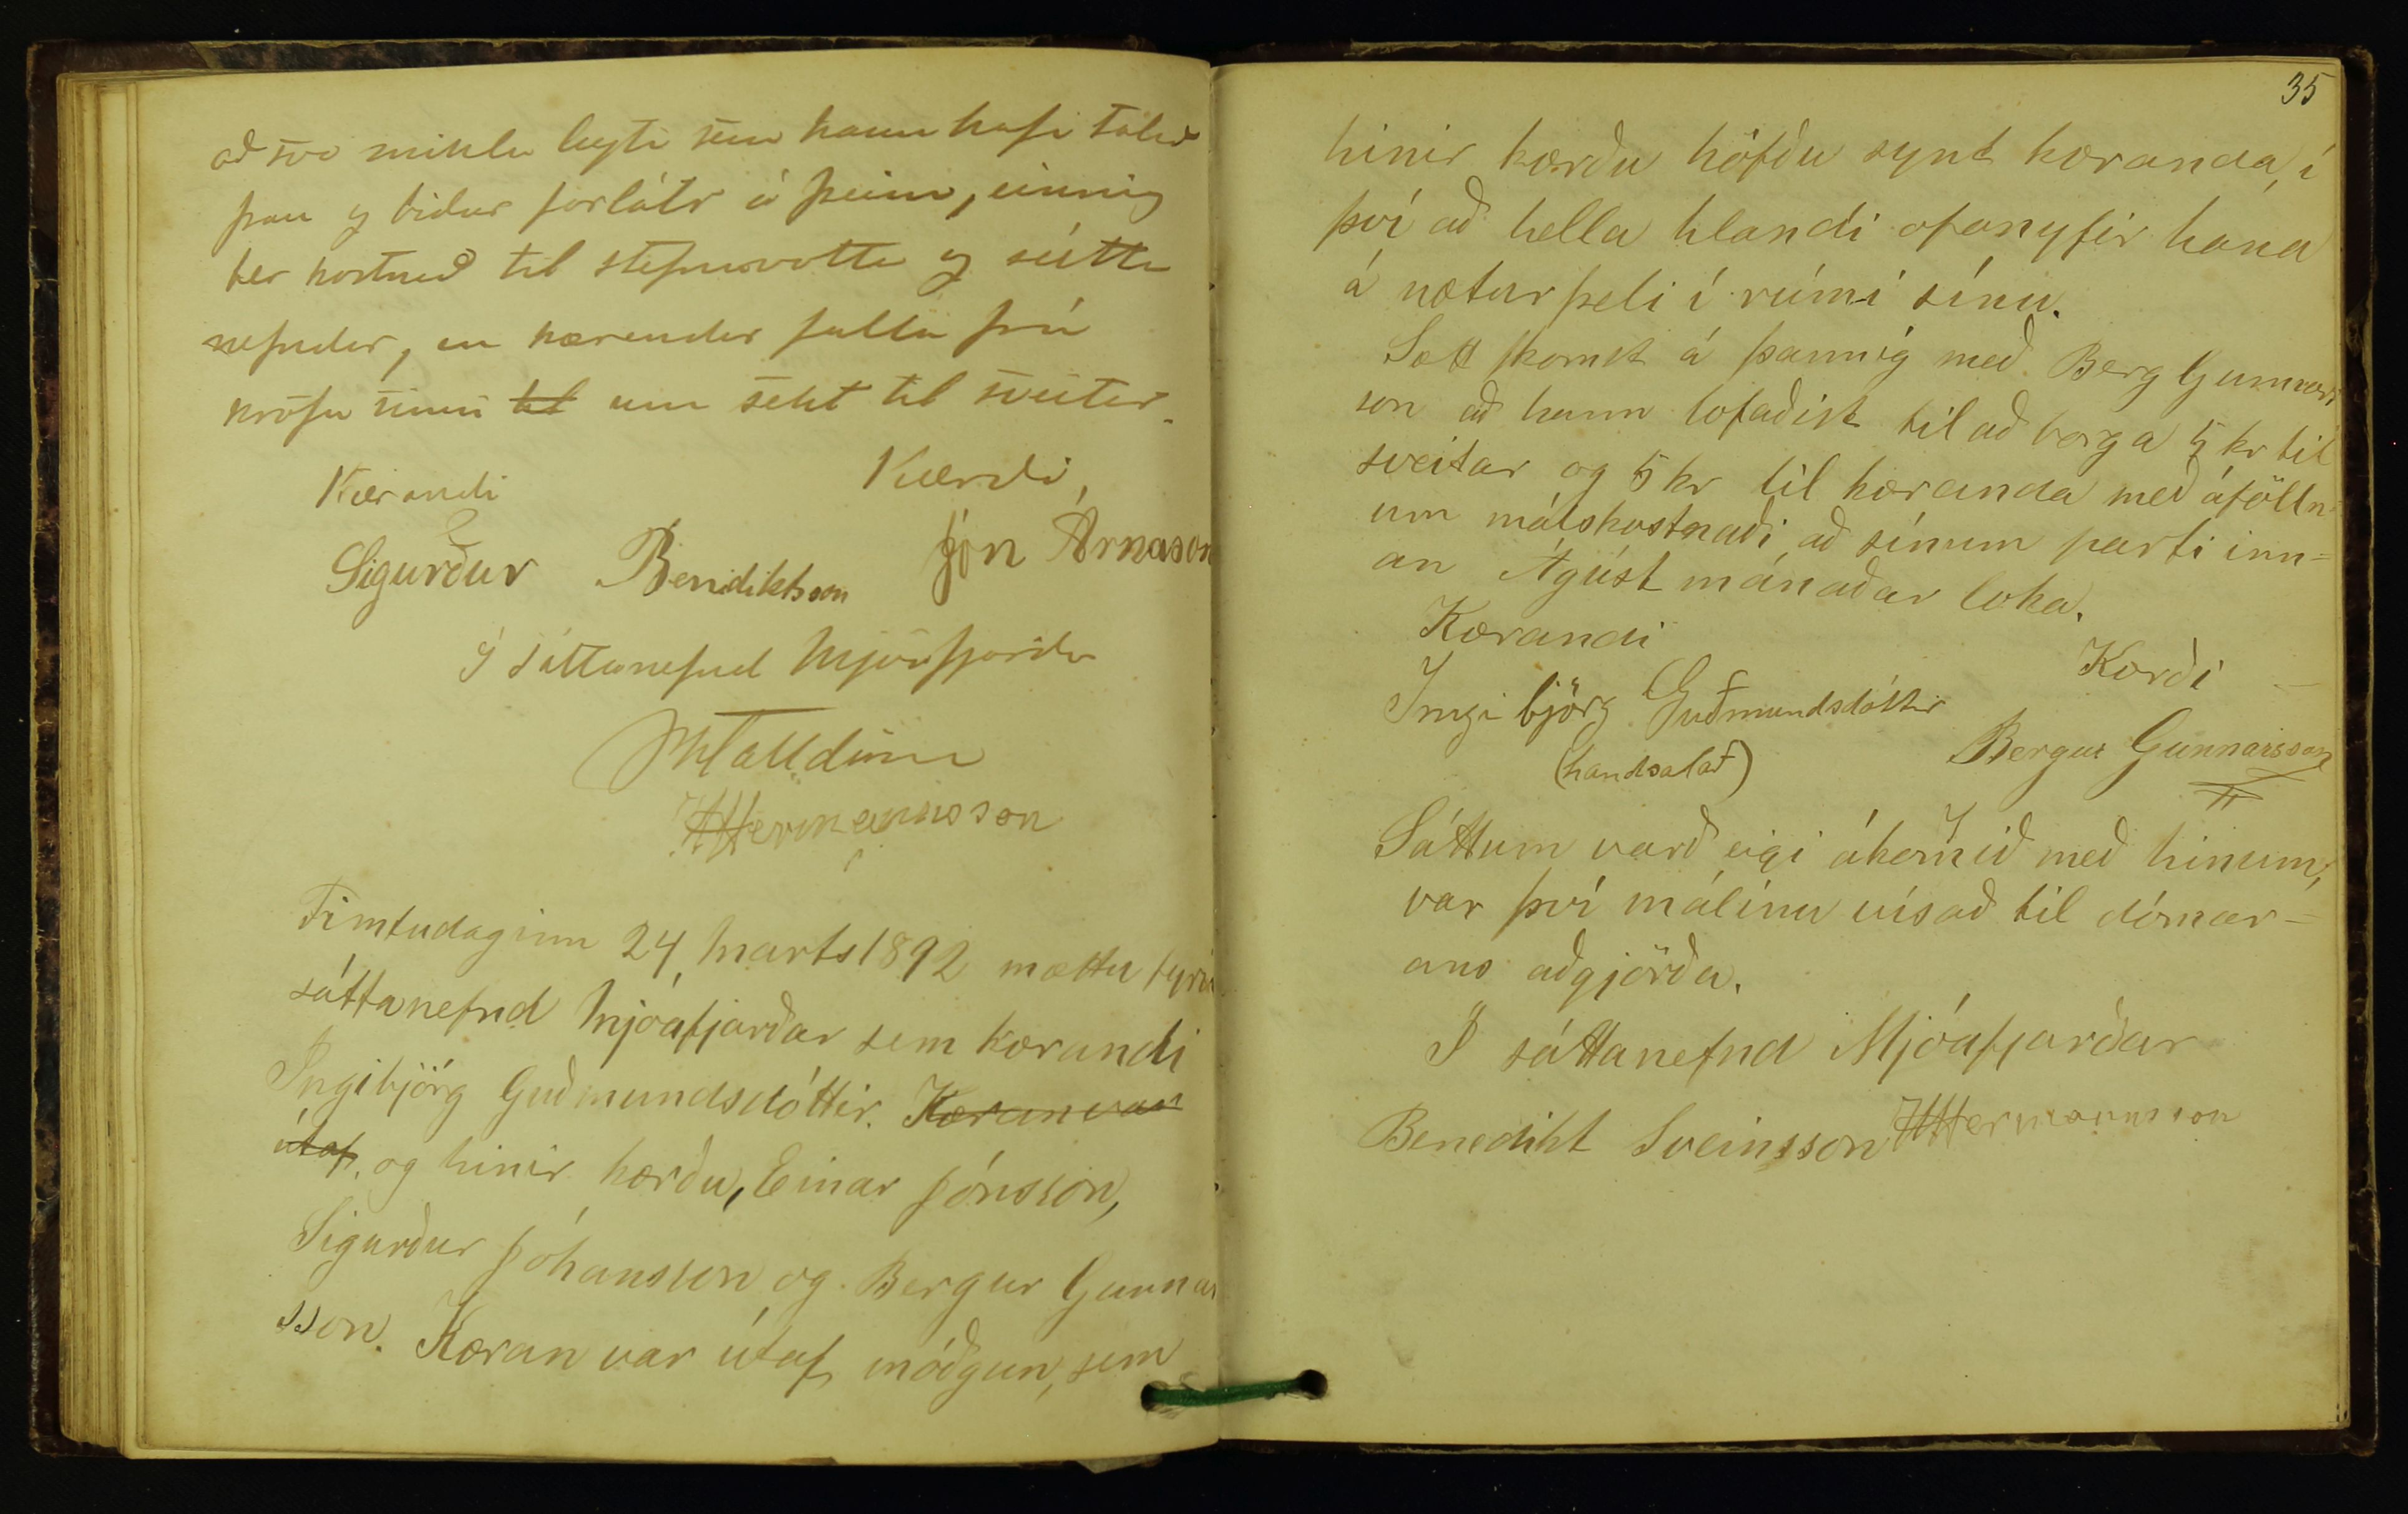 að svo miklu leyti sem hann hafi talað
þau og biður forláts á þeim, einnig
ber kostnað til stefnuvotta og sátta
nefndar, en kærendur falla frá
kröfu sinni til um sekt til sveitar.
Kærandi Kærði,
Sigurður Bendiktsson Jón Árnason
Í sáttanefnd Mjóafjarðar
HHermannsson
Fimtudaginn 24 Marts 1892 mættu fyrir
sáttanefnd Mjóafjarðar sem kærandi
Ingibjörg Guðmundsdóttir. Kæran var
útaf, og hinir kærðu, Einar Jónsson,
Sigurður Jóhansson og Bergur Gunnar
sson. Kæran var útaf móðgun, sem
35
hinir kærðu höfðu synt kæranda, í
því að hella hlandi ofanyfir hana
á næturþeli í rúmi sínu.
Sætt komst á þannig með Berg Gunnars
son að hann lofaðist til að borga 5 kr til
sveitar og 5 kr til kæranda með áfölln
um málskostnaði, að sínum parti inn=
an Ágúst mánaðar loka.
Kærandi
Kærði
Ingibjörg Guðmundsdóttir
(handsalað)
Bergur Gunnarsson
Sáttum varð eigi ákomið með hinum,
var því málinu vísað til dómar-
ans aðgjörða.
Í sáttanefnd Mjóafjarðar
Benedikt Sveinsson HHermannsson